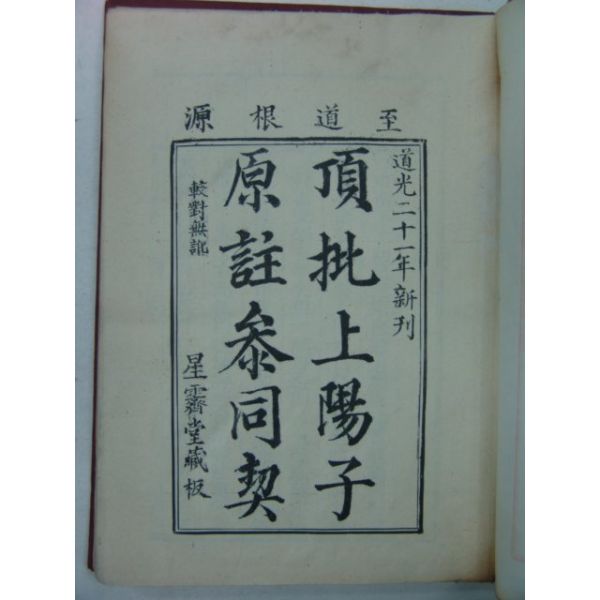 至道根源
道光二十一年新刊
頂批上陽子
原註叅同契
較對無訛
星霽堂藏板